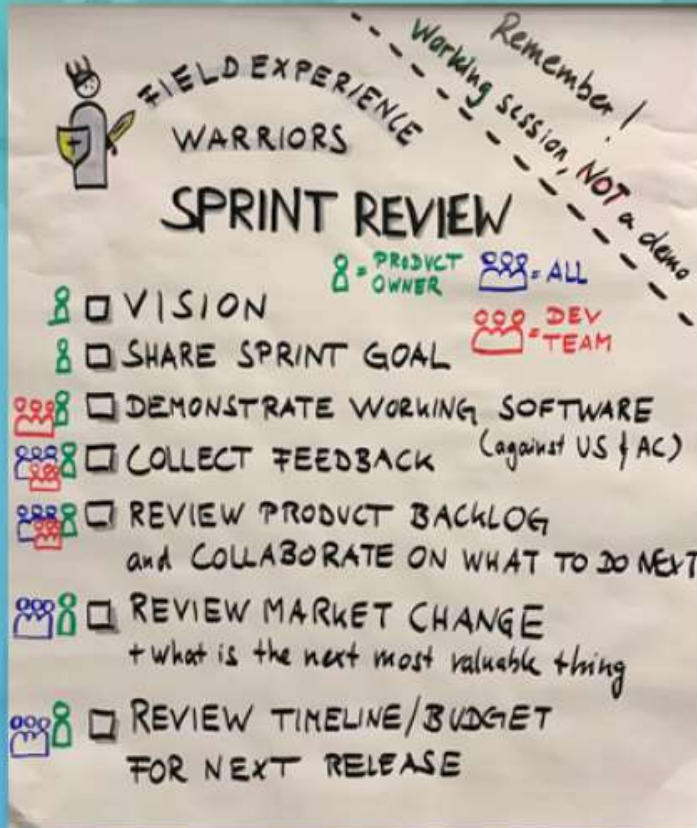 FIELD EXPERIENCE
WARRIORS
Remember!
Working session, NOT a demo
SPRINT REVIEW
= PRODUCT OWNER
= ALL
= DEV TEAM
VISION
SHARE SPRINT GOAL
DEMONSTRATE WORKING SOFTWARE
(against US & AC)
COLLECT FEEDBACK
REVIEW PRODUCT BACKLOG
and COLLABORATE ON WHAT TO DO NEXT
REVIEW MARKET CHANGE
+ what is the next most valuable thing
REVIEW TIMELINE/BUDGET
FOR NEXT RELEASE